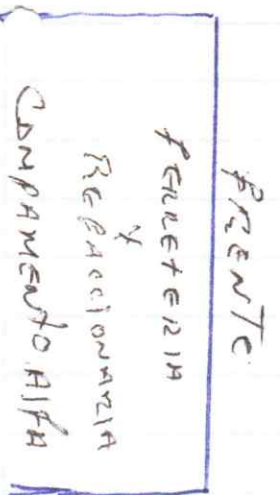 FRENTE
FERRETERIA
Y
REFACCIONARIA
CONPAMENTO AlFA